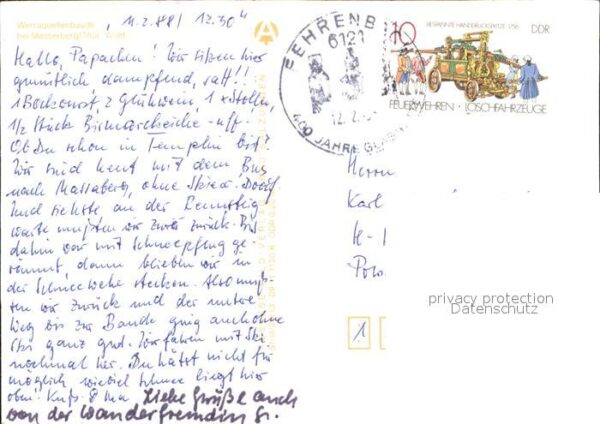 Werraquellenbaude
bei Masserberg/Thür. Wald
"11.2.88/ 12.30"
Hallo, Papachen! Wir sitzen hier
gemütlich, dampfend, satt!!
1 Bockwurst, 2 Glühwein, 1 x Stollen,
1/2 Stück Bismarckeiche - uff.
Ob Du schon in Templin bist?
Wir sind heut mit dem Bus
nach Masserberg, ohne Skier! Doof!
Und siehste an der Rennsteig
warte mußten wir zwar zurück. Bis
dahin war mit Schneepflug ge-
räumt, dann blieben wir in
der Schneewehe stecken. Also muß-
ten wir zurück und der untere
Weg bis zur Baude ging auch ohne
Ski ganz gut. Wir fahren mit Ski
nochmal her. Du hältst nicht für
möglich wieviel Schnee liegt hier
oben. 8 Ma Liebe Grüße auch
von der Wanderfreundin Gi.
EEHRENB
6121
12.2.
400 JAHRE
10
BESPANNTE HANDDRUCKSPRITZE 1756
DDR
FEUERWEHREN · LÖSCHFAHRZEUGE
Herrn
Karl
Pow.
1
privacy protection
Datenschutz